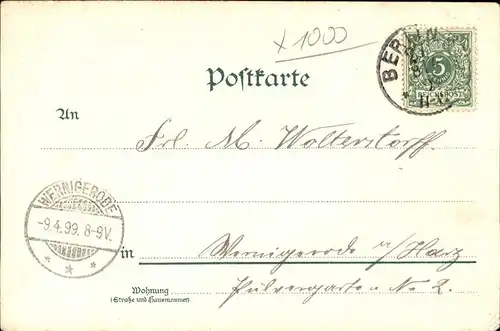 x 1000
Postkarte
BERLIN
5
REICHSPOST
An
Frl. M. Wolterstorff
WERNIGERODE
-9.4.99. 8-9V.
* * *
in Wernigerode a/Harz
Wohnung
(Straße und Hausnummer)
Pulvergarten No 2.